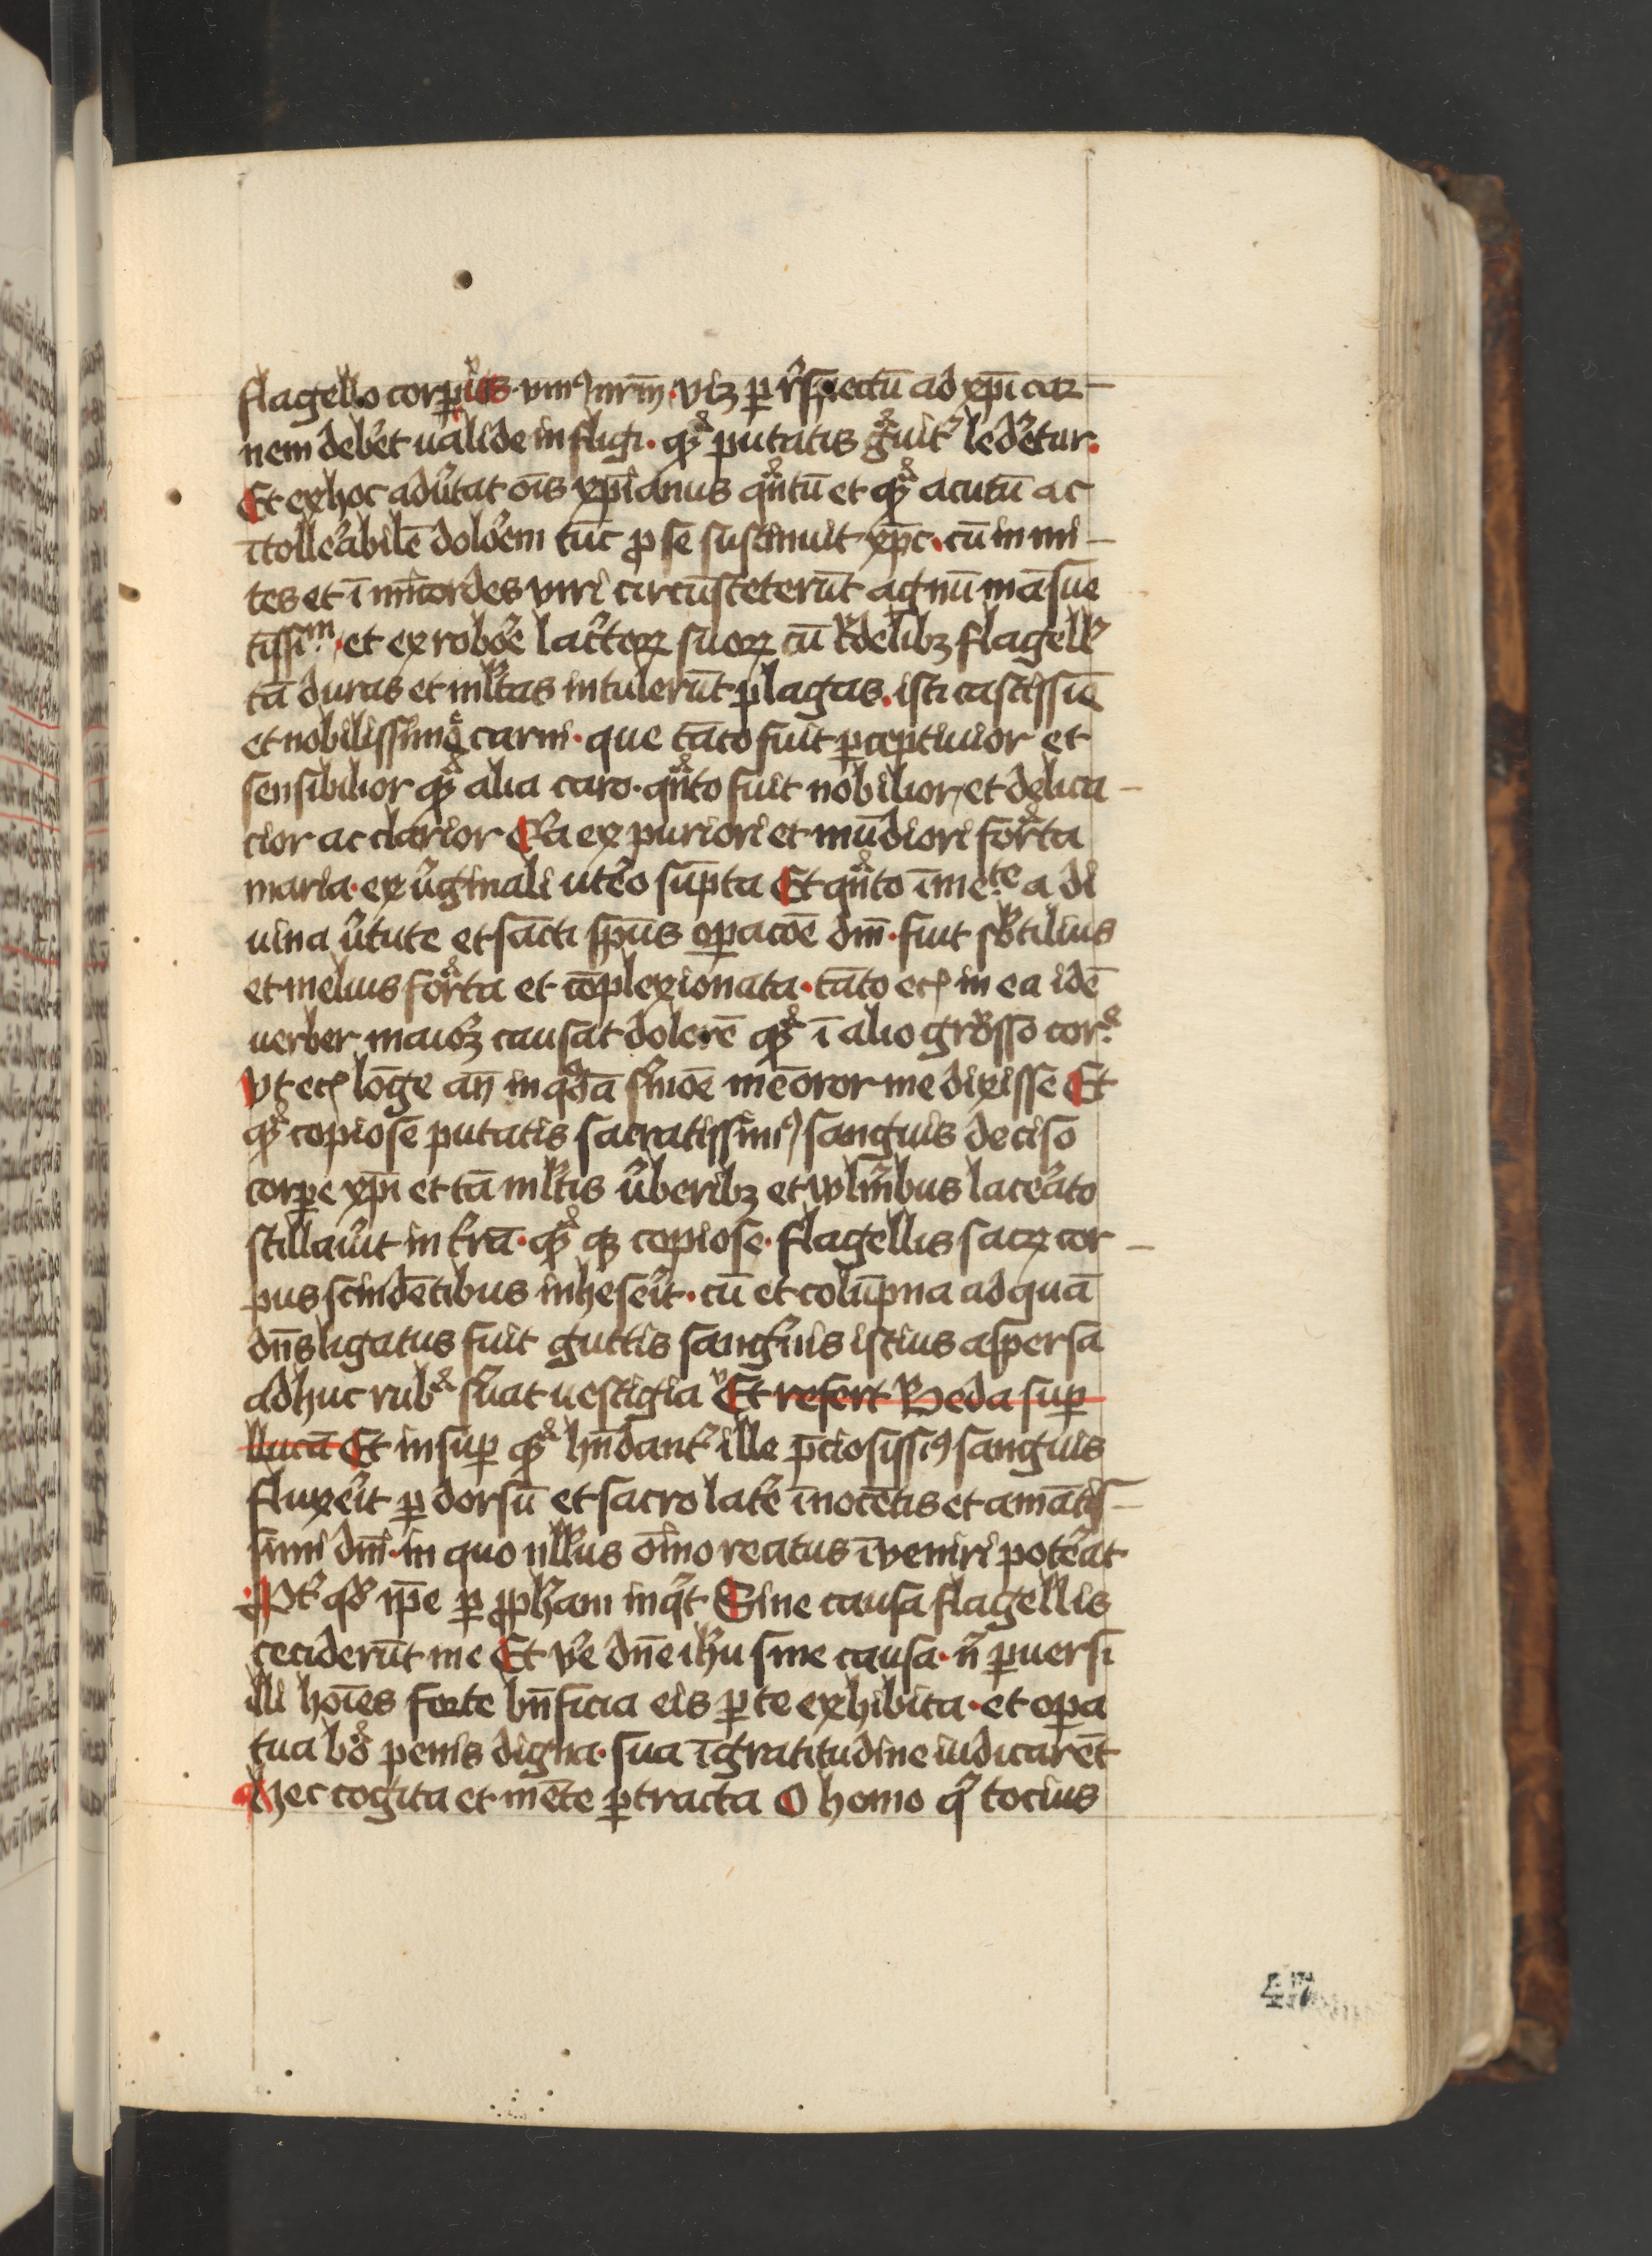 flagello corꝑis vniꝰ nr̄m viꝫ ꝑ rspectū ad xp̄i car
nem debet ualide infligi qͣ putatis gͣuitˀ ledetur
Et ex hoc aduˀtat ōis xp̄ianus qͣntū et qͣ acutū ac
ītollerabilē dolorem tūc ꝓ se sustinuit xp̄c cū inmi
tes et īmīcordes viri circūsteterūt agnū māsue
tissim et ex robore lacertoꝝ suoꝝ cū crudelibꝫ flagellˀ
tā duras et mltas intulerūt plagas isti castissīe
et nobilissime carni que tāto fuit ꝑceptiuior et
sensibilior qͣ alia caro qͣnto fuit nobilior et delica
cior ac clarior Qͥa ex puriori et mūdiori formͣta
maria ex uˀginali utero sūpta Et qͣnto īmeͭͤ a di
uina uˀtute et sācti sp̄us oꝑacōe dm̄ fuit sbtilius
et melius formͣta et cōplexionata tāto ecꝭ in ea idē
uerber maiorꝫ causat dolorē qͣ ī alio grosso corͤ
Vt ecꝭ lōge an̄ in qͣdā sˀmōe memoror me dixisse Et
qͣ copiose putatis sacratissimꝰ sanguis deciso
corꝑe xp̄i et tā mltis uˀberibꝫ et vulnˀibus lacerato
stillauit in tˀrā qͣ qꝫ copiose flagellis sacꝝ cor
pus scindētibus inheserit cū et colūpna ad quā
dn̄s ligatus fuit guttis sanguinis istius aspersa
adhuc rubͣ sˀuat uestigia Et refert Beda suꝑ
llucā Et insuꝑ qͣ hūdantˀ ille p̄ciosissiꝰ sanguis
fluxerit ꝑ dorsū et sacro latere īnocētis et amātis
simi dn̄i in quo nllus oīno reatus īveniri poterat
Ptˀ qd ip̄e ꝑ ꝓphͣam inqͥt Sine causa flagellis
ceciderūt me Et vˀe dn̄e ihū sine causa nͥ ꝑuersi
illi hoīes forte bn̄ficia eis ꝑ te exhibita et oꝑa
tua boͣ penis digna sua īgratitudine iudicarēt
Hec cogita et mēte ꝑtracta O homo qͥ tocius
47